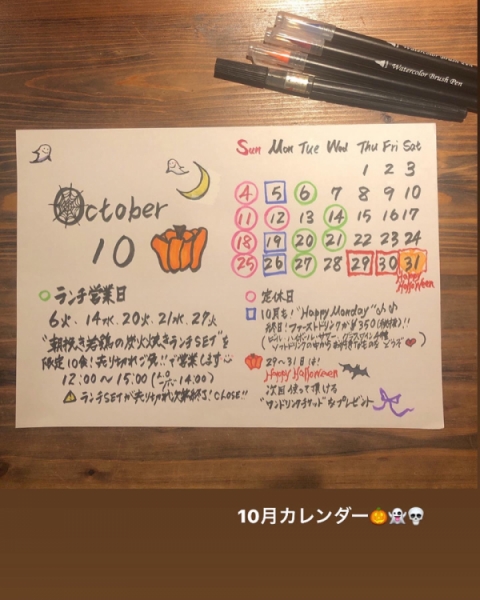 Watercolor Brush Pen
October
10
Sun Mon Tue Wed Thu Fri Sat
1 2 3
4 5 6 7 8 9 10
11 12 13 14 15 16 17
18 19 20 21 22 23 24
25 26 27 28 29 30 31
Happy
Halloween
ランチ営業日
6火、14水、20火、21水、27火
"朝挽き若鶏の炭火焼きランチSET"を
限定10食!売り切れゴ免!!で営業します
12:00〜15:00(L.O 14:00)
ランチSETが売り切れ次第終了!CLOSE!!
定休日
10月も!"Happy Monday"
終日!ファーストドリンクが¥350(税抜)!!
(ビール・ハイボール・サワー・グラスワイン4種
ソフトドリンクの中からお好きなものをどうぞ
29〜31日は!
Happy Halloween
次回使って頂ける
"ワンドリンクチケット"をプレゼント
10月カレンダー🎃👻💀